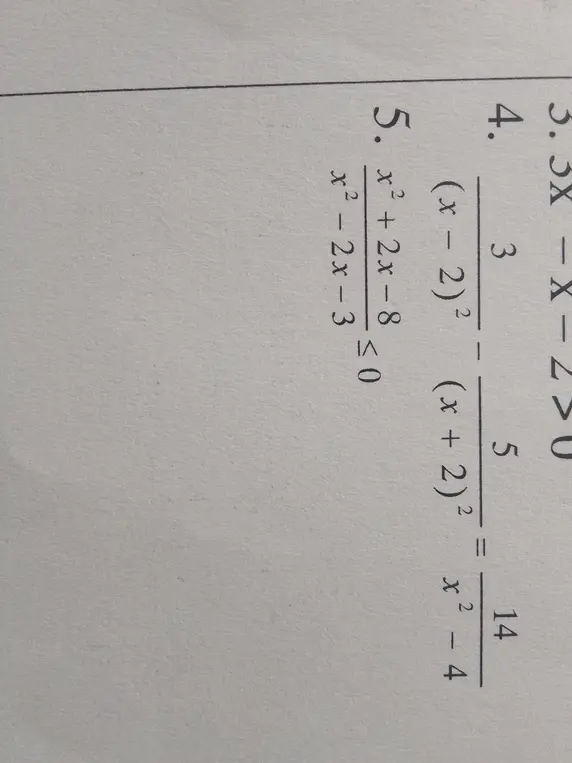 3. 3x - x - 2 > 0
4. 3/(x - 2)² - 5/(x + 2)² = 14/(x² - 4)
5. (x² + 2x - 8)/(x² - 2x - 3) ≤ 0